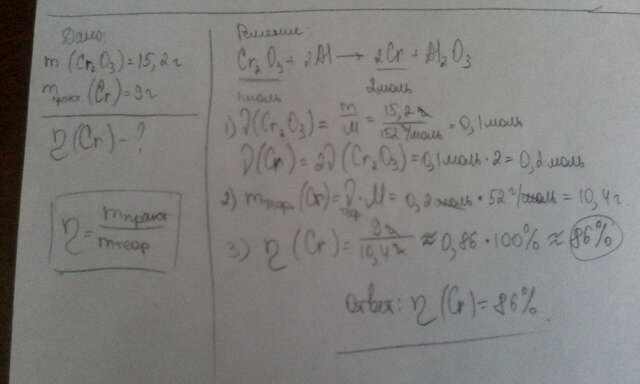 Дано:
m (Cr₂O₃) = 15,2 г
mпракт. (Cr) = 9 г
η (Cr) - ?
η = mпракт / mтеор
Решение:
Cr₂O₃ + 2Al → 2Cr + Al₂O₃
1моль 2моль
1) ν(Cr₂O₃) = m/M = 15,2 г / 152 г/моль = 0,1 моль
ν(Cr) = 2ν(Cr₂O₃) = 0,1 моль · 2 = 0,2 моль
2) mтеор (Cr) = νтеор · M = 0,2 моль · 52 г/моль = 10,4 г.
3) η (Cr) = 9 г / 10,4 г ≈ 0,86 · 100% ≈ 86%
Ответ: η (Cr) = 86%.